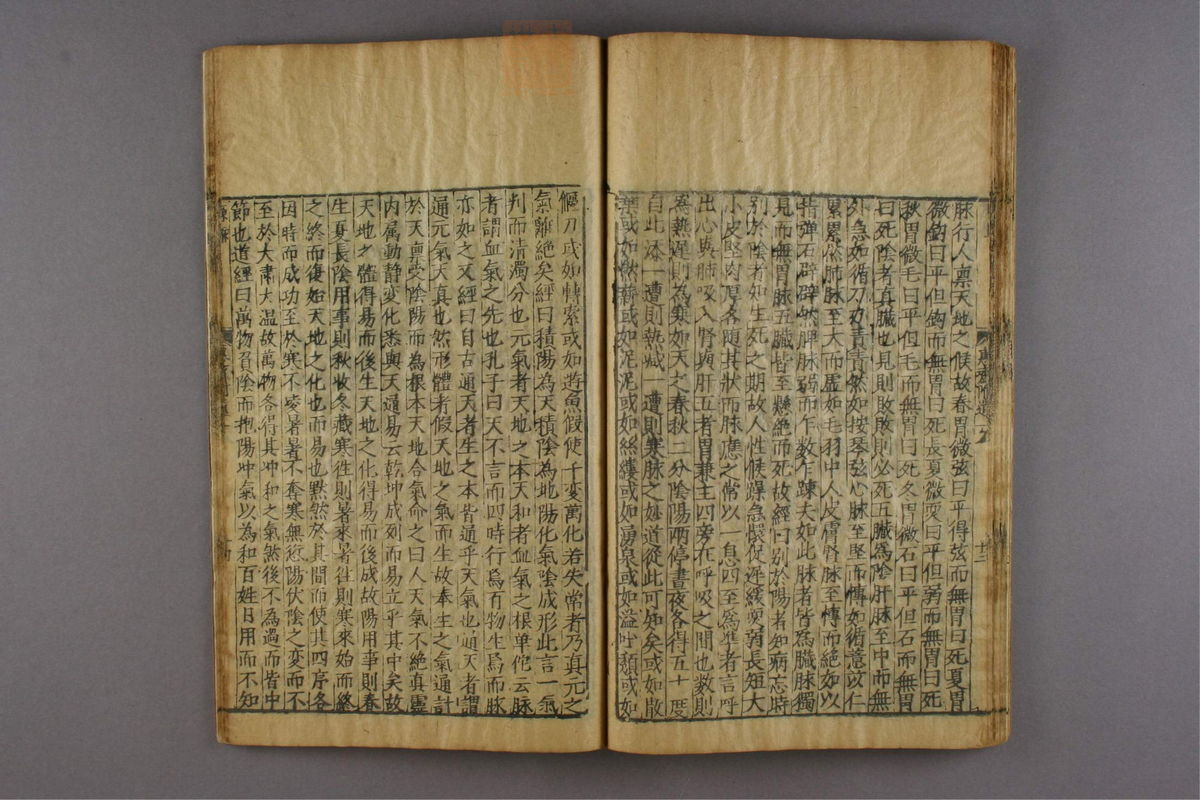 脉行人禀天地之候故春胃微弦曰平得弦而無胃曰死夏胃
微鈎曰平但鈎而無胃曰死長夏微耎曰平但弱而無胃曰死
秋胃微毛曰平但毛而無胃曰死冬胃微石曰平但石而無胃
曰死陰者真臓也見則敗敗則必死五臓為陰肝脉至中而無
外急如循刀刃責責然如按琴弦心脉至堅而慱如循薏苡仁
累累然肺脉至大而虛如毛羽中人皮膚腎脉至慱而絕如以
指彈石辟辟然脾脉弱而乍數乍踈夫如此脉者皆為臓脉獨
見而無胃脉五臓皆至懸絕而死故經曰別於陽者知病忘時
別於陰者知生死之期故人性候躁急促遲緩耎弱長短大
小皮堅肉厚各隨其狀而脉應之常以一息四至為準者言呼
出心與肺吸入腎與肝五者胃兼主四旁在呼吸之間也數則
為熱遲則為寒如天之春秋二分陰陽兩停晝夜各得五十度
自此添一遭則熱減一遭則寒脉之妙道從此可知矣或如散
葉或如燃薪或如泥泥或如絲縷或如湧泉或如溢 類或如
偃刀或如轉索或如遊魚假使千變萬化若失常者乃真元之
氣離絕矣經曰積陽為天積陰為地陽化氣陰成形此言一氣
判而清濁分也元氣者天地之本天和者血氣之根華佗云脉
者謂血氣之先也孔子曰天不言而四時行焉百物生焉而脉
亦如之又經曰自古通天者生之本皆通乎天氣也通天者謂
通元氣天真也然形體者假天地之氣而生故奉生之氣通計
於天禀受陰陽而為根本天地合氣命之曰人天氣不絕真靈
内属動静変化悉與天通易云乾坤成列而易立乎其中矣故
天地之體得易而後生天地之化得易而後成故陽用事則春
生夏長陰用事則秋收冬藏寒徃則暑來暑往則寒來始而終
之終而復始天地之化也而易也黙黙然於其間而使其四序各
因時而成功至於寒不凌暑暑不奪寒無愆陽伏陰之変而不
至於大肅大温故萬物各得其冲和之氣然後不為過而皆中
節也道經曰萬物負陰而抱陽冲氣以為和百姓日用而不知